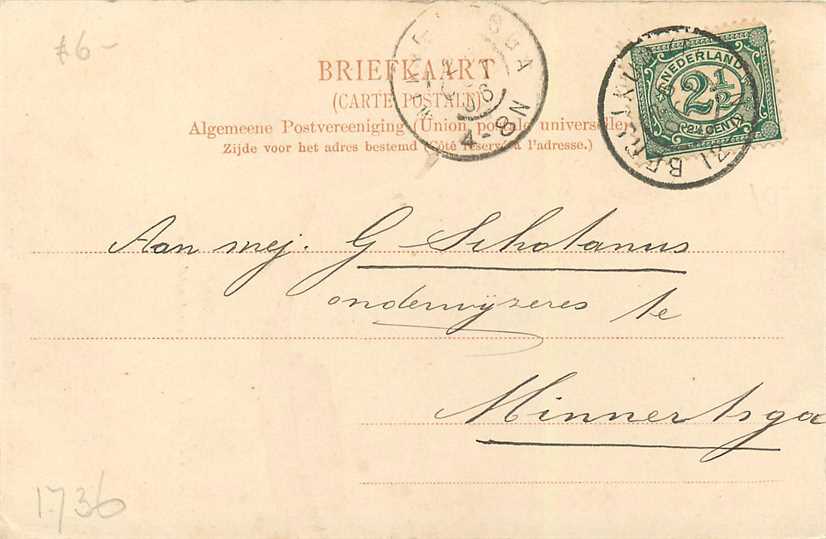 £6-
BRIEFKAART
(CARTE POSTALE)
Algemeene Postvereeniging (Union postale universelle)
Zijde voor het adres bestemd (Côté réservé à l'adresse.)
4-8N
NEDERLAND
2½
CENT
Aan mej. G Schotanus
onderwijzeres te
Minnertsga
1736